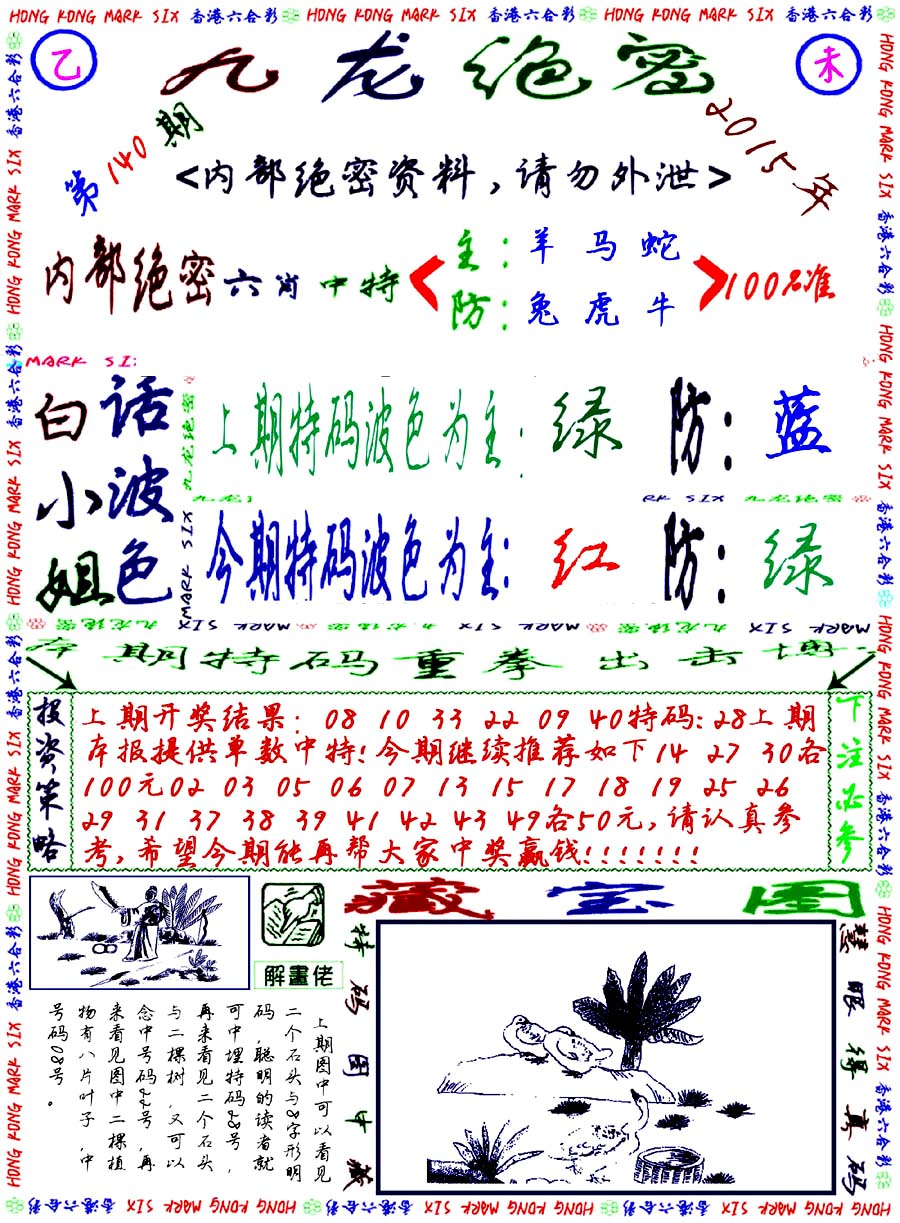 HONG KONG MARK SIX 香港六合彩 HONG KONG MARK SIX 香港六合彩 HONG KONG MARK SIX 香港六合彩
乙
九龙绝密
未
第140期
2015年
<内部绝密资料,请勿外泄>
内部绝密六肖中特
主:羊马蛇
防:兔虎牛
100%准
MARK SI:
白话
小波
姐色
上期特码波色为主:绿 防:蓝
九龙绝密
RK SIX 九龙绝密
今期特码波色为主:红 防:绿
MARK SIX
本期特码重拳出击博
投资策略
上期开奖结果: 08 10 33 22 09 40特码:28上期
本报提供单数中特!今期继续推荐如下14 27 30各
100元02 03 05 06 07 13 15 17 18 19 25 26
29 31 37 38 39 41 42 43 49各50元,请认真参
考,希望今期能再帮大家中奖赢钱!!!!!!!
下注必参
解畫佬
藏宝图
特码图中藏
慧眼得真码
上期图中可以看见
二个石头与8字形明
码,聪明的读者就
可中埋特码28号,
再来看见二个石头
与二棵树,又可以
念中号码22号,再
来看见图中二棵植
物有八片叶子,中
号码08号。
HONG KONG MARK SIX 香港六合彩 HONG KONG MARK SIX 香港六合彩 HONG KONG MARK SIX 香港六合彩